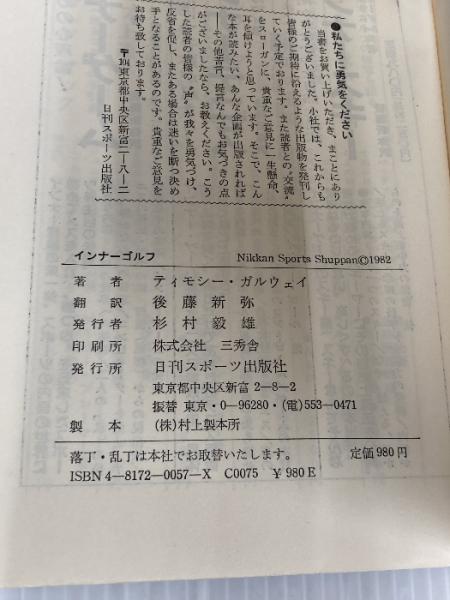 ●私たちに勇気をください
当書をお買い上げいただき、まことにあり
がとうございました。小社では、これからも
皆様のご期待に沿えるような出版物を発刊し
ていく予定でおります。また読者との〝交流〟
をスローガンに、貴重なご意見に一生懸命、
耳を傾けようと思っています。そこで、こん
な本が読みたい、あんな企画が出版されれば
――その他苦言、提言なんでもお気づきの点
がございましたなら、お教えください。こう
した読者の皆様の〝声〟が我々を勇気づけ、
反省を促し、またある場合は迷いを断つ決め
手となることがあるのです。貴重なご意見を
お待ち致しております。
〒104東京都中央区新富二―八―二
日刊スポーツ出版社
インナーゴルフ Nikkan Sports Shuppan©1982
著者 ティモシー・ガルウェイ
翻訳 後藤新弥
発行者 杉村毅雄
印刷所 株式会社 三秀舎
発行所 日刊スポーツ出版社
東京都中央区新富 2―8―2
振替 東京・0―96280・(電)553―0471
製本 (株)村上製本所
落丁・乱丁は本社でお取替いたします。 定価980円
ISBN 4―8172―0057―X C0075 ¥ 980 E